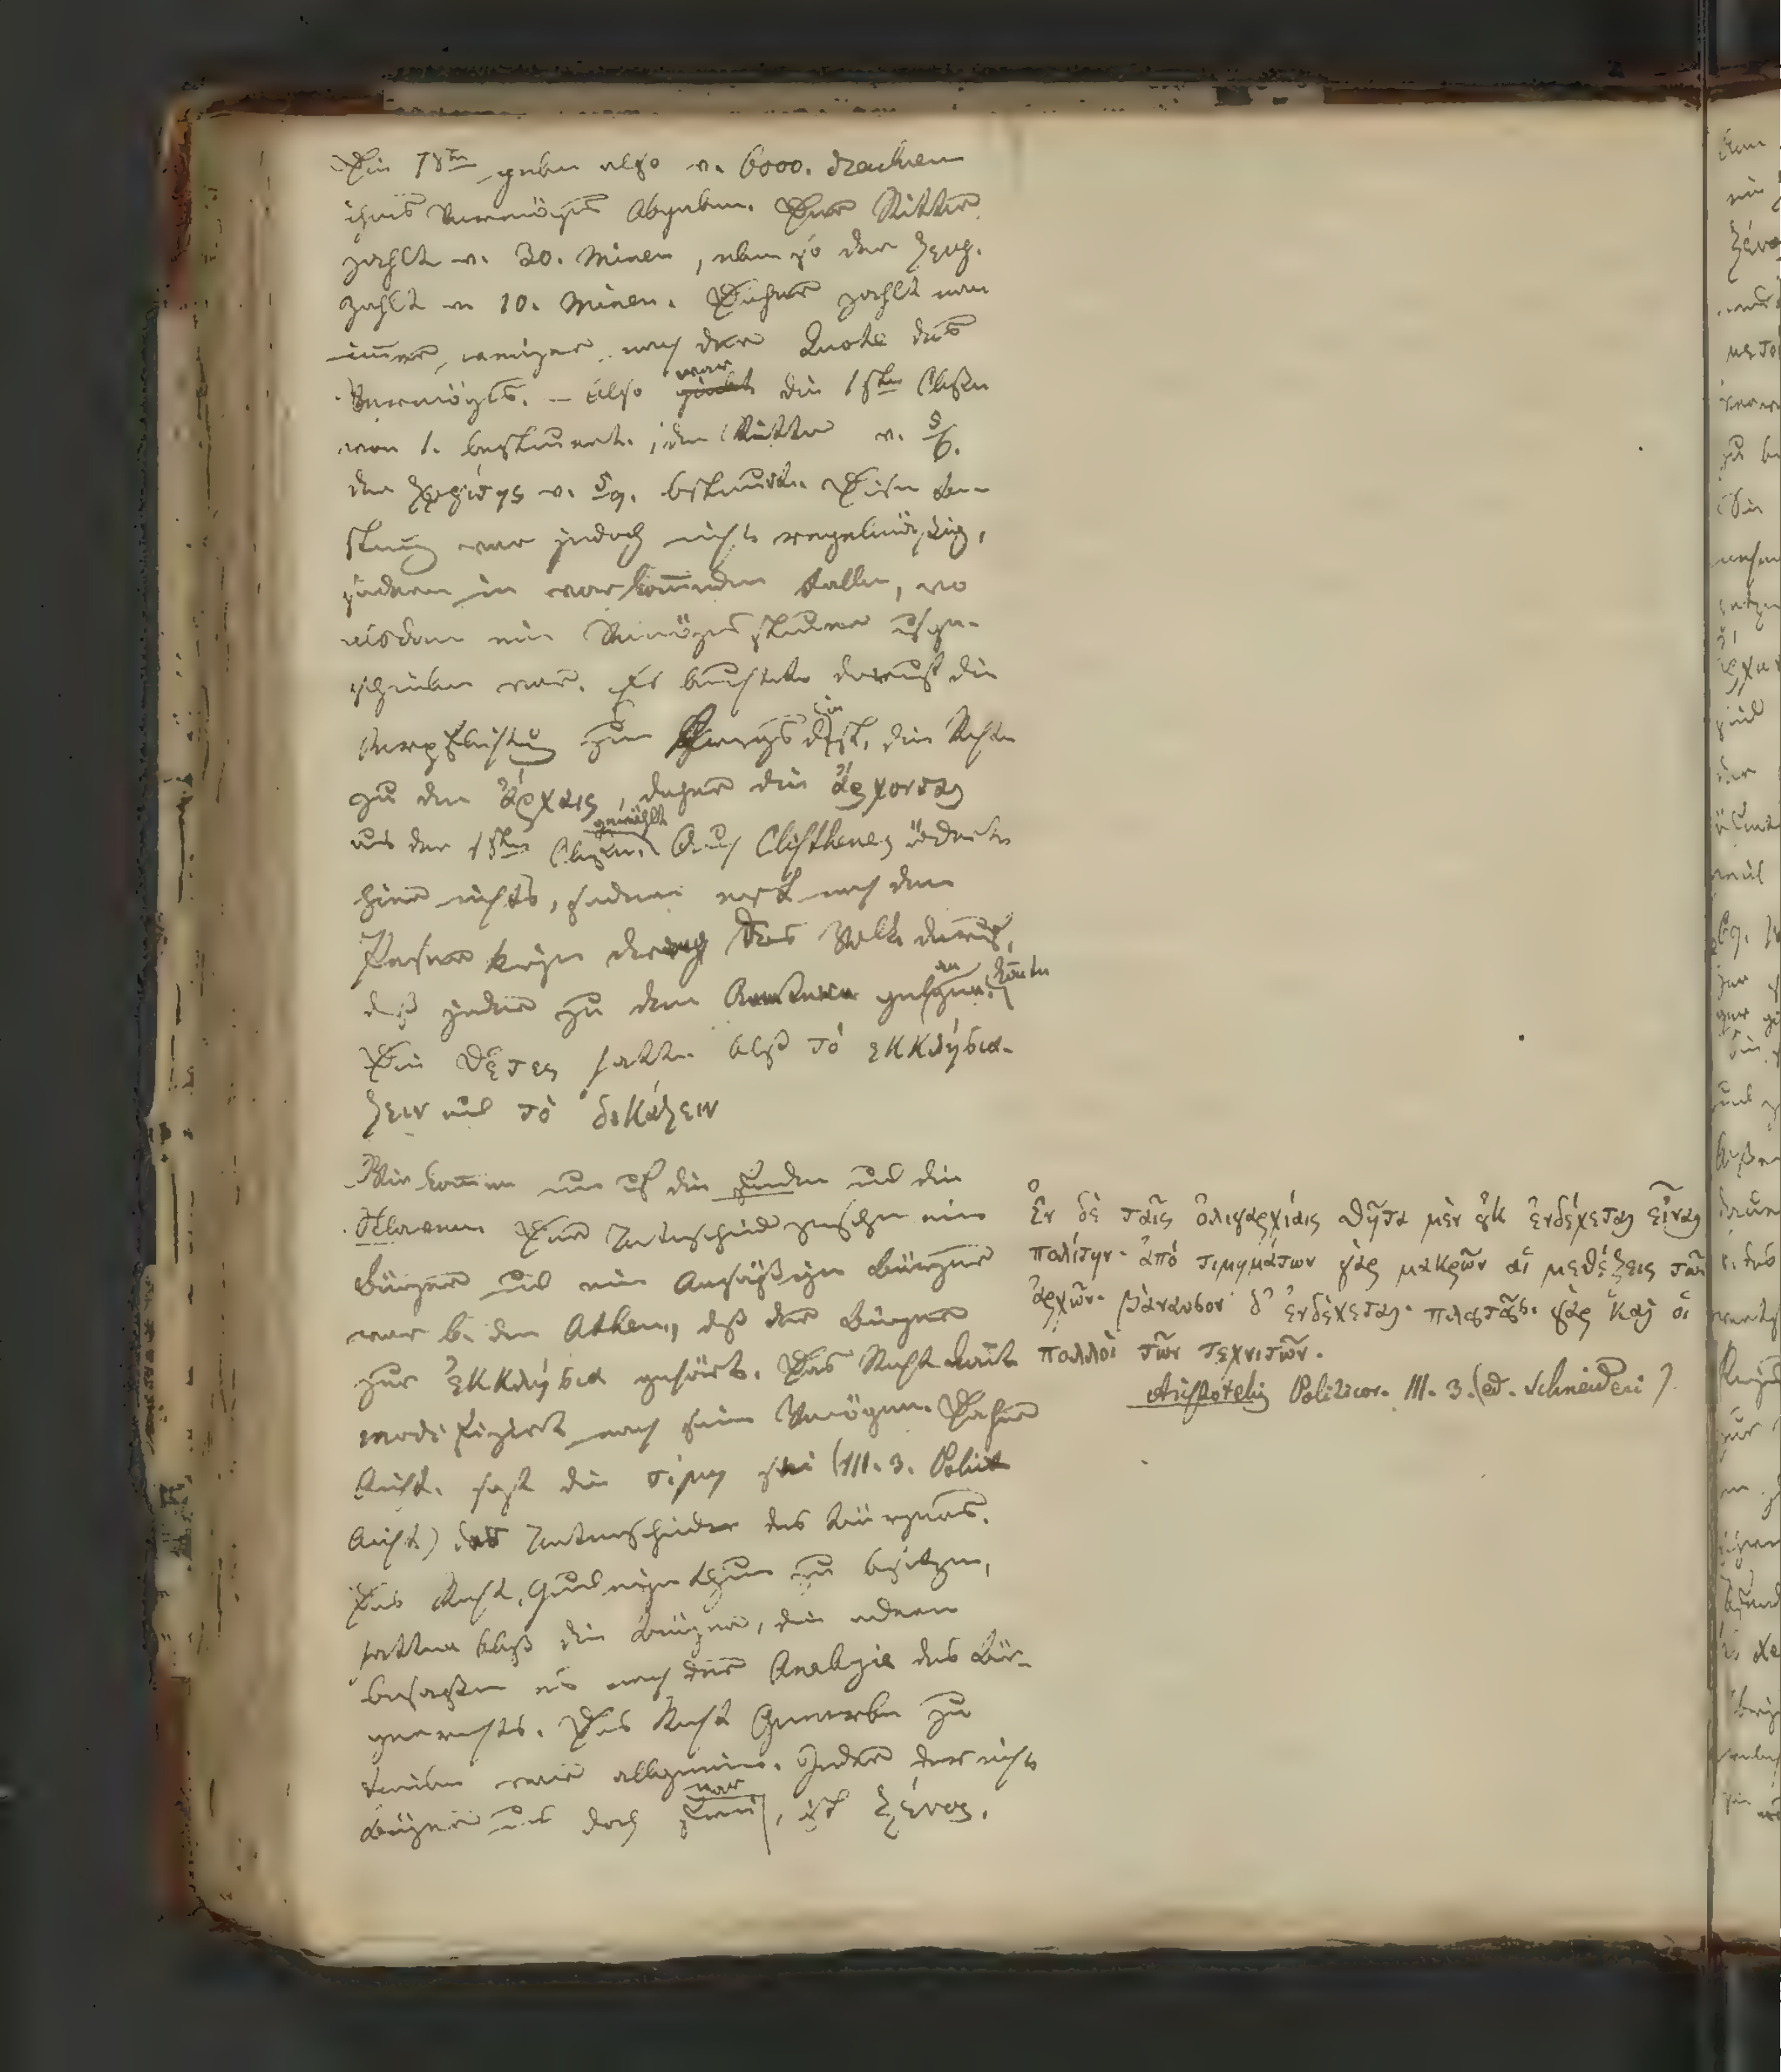 Die 1sten geben also v. 6000. Drachmen
ihres Vermögens Abgaben. Der Ritter
zahlt v. 30. Minen, eben so der Zeug.
zahlt v. 10. Minen. Daher zahlt man
immer weniger nach der Quote des
Vermögens. – Also war die 1ste Classe
von 1. besteuert, die Ritter v. 5/6.
der ζευγίτης v. 5/9. besteuert. Diese Be-
steurung war jedoch nicht regelmäßig,
sondern in vorkommenden Fällen, wo
alsdann eine Vermögenssteuer ausge-
schrieben war. Es beruhte darauf die
Verpflichtung zum Kriegsdienst, die Rechte
zu den ἀρχαις, daher die ἄρχονται
aus der 1sten Classe gewählt. Auch Clisthenes änderte
hier nichts, sondern erst nach dem
Perser Kriege drang das Volk darauf,
daß jeder zu den Aemtern gelangen könnte
Die θῆτες hatten bloß τὸ ἐκκλησιά-
ζειν und τὸ δικάζειν
Wir kommen nun auf die Fremden und die
Sklaven. Der Unterschied zwischen einem
Bürger und einem Ansäßigen Bürger
war b. den Athen., daß der Bürger
zur ἐκκλησια gehört. Das Recht
modifiziert nach seinem Vermögen. Daher
Arist. sagt die τίμη sei (III. 3. Polit
Arist) das Unterscheiden des Bürgers.
Das Recht, Grundeigenthum zu besitzen,
hatten bloß die Bürger, die andern
besaßen es nach der Analogie des Bür-
gerrechts. Das Recht Gewerbe zu
treiben war allgemein. Jeder der nicht
Bürger und doch frei war, ist ξένος.
Ἐν δὲ ταῖς ὀλιγαρχίαις θῆτα μὲν οὐκ ἐνδέχεται εἶναι
πολίτην· ἀπὸ τιμημάτων γὰρ μακρῶν αἱ μεθέξεις τῶν
ἀρχῶν· βάναυσον δ' ἐνδέχεται· πλουτοῦσι γὰρ καὶ οἱ
πολλοὶ τῶν τεχνιτῶν.
Aristotelis Politicor. III. 3. (ed. Schneideri)